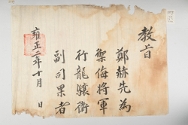 教旨
鄭赫先為
禦侮將軍
行龍驤衛
副司果者
雍正二年十月　日